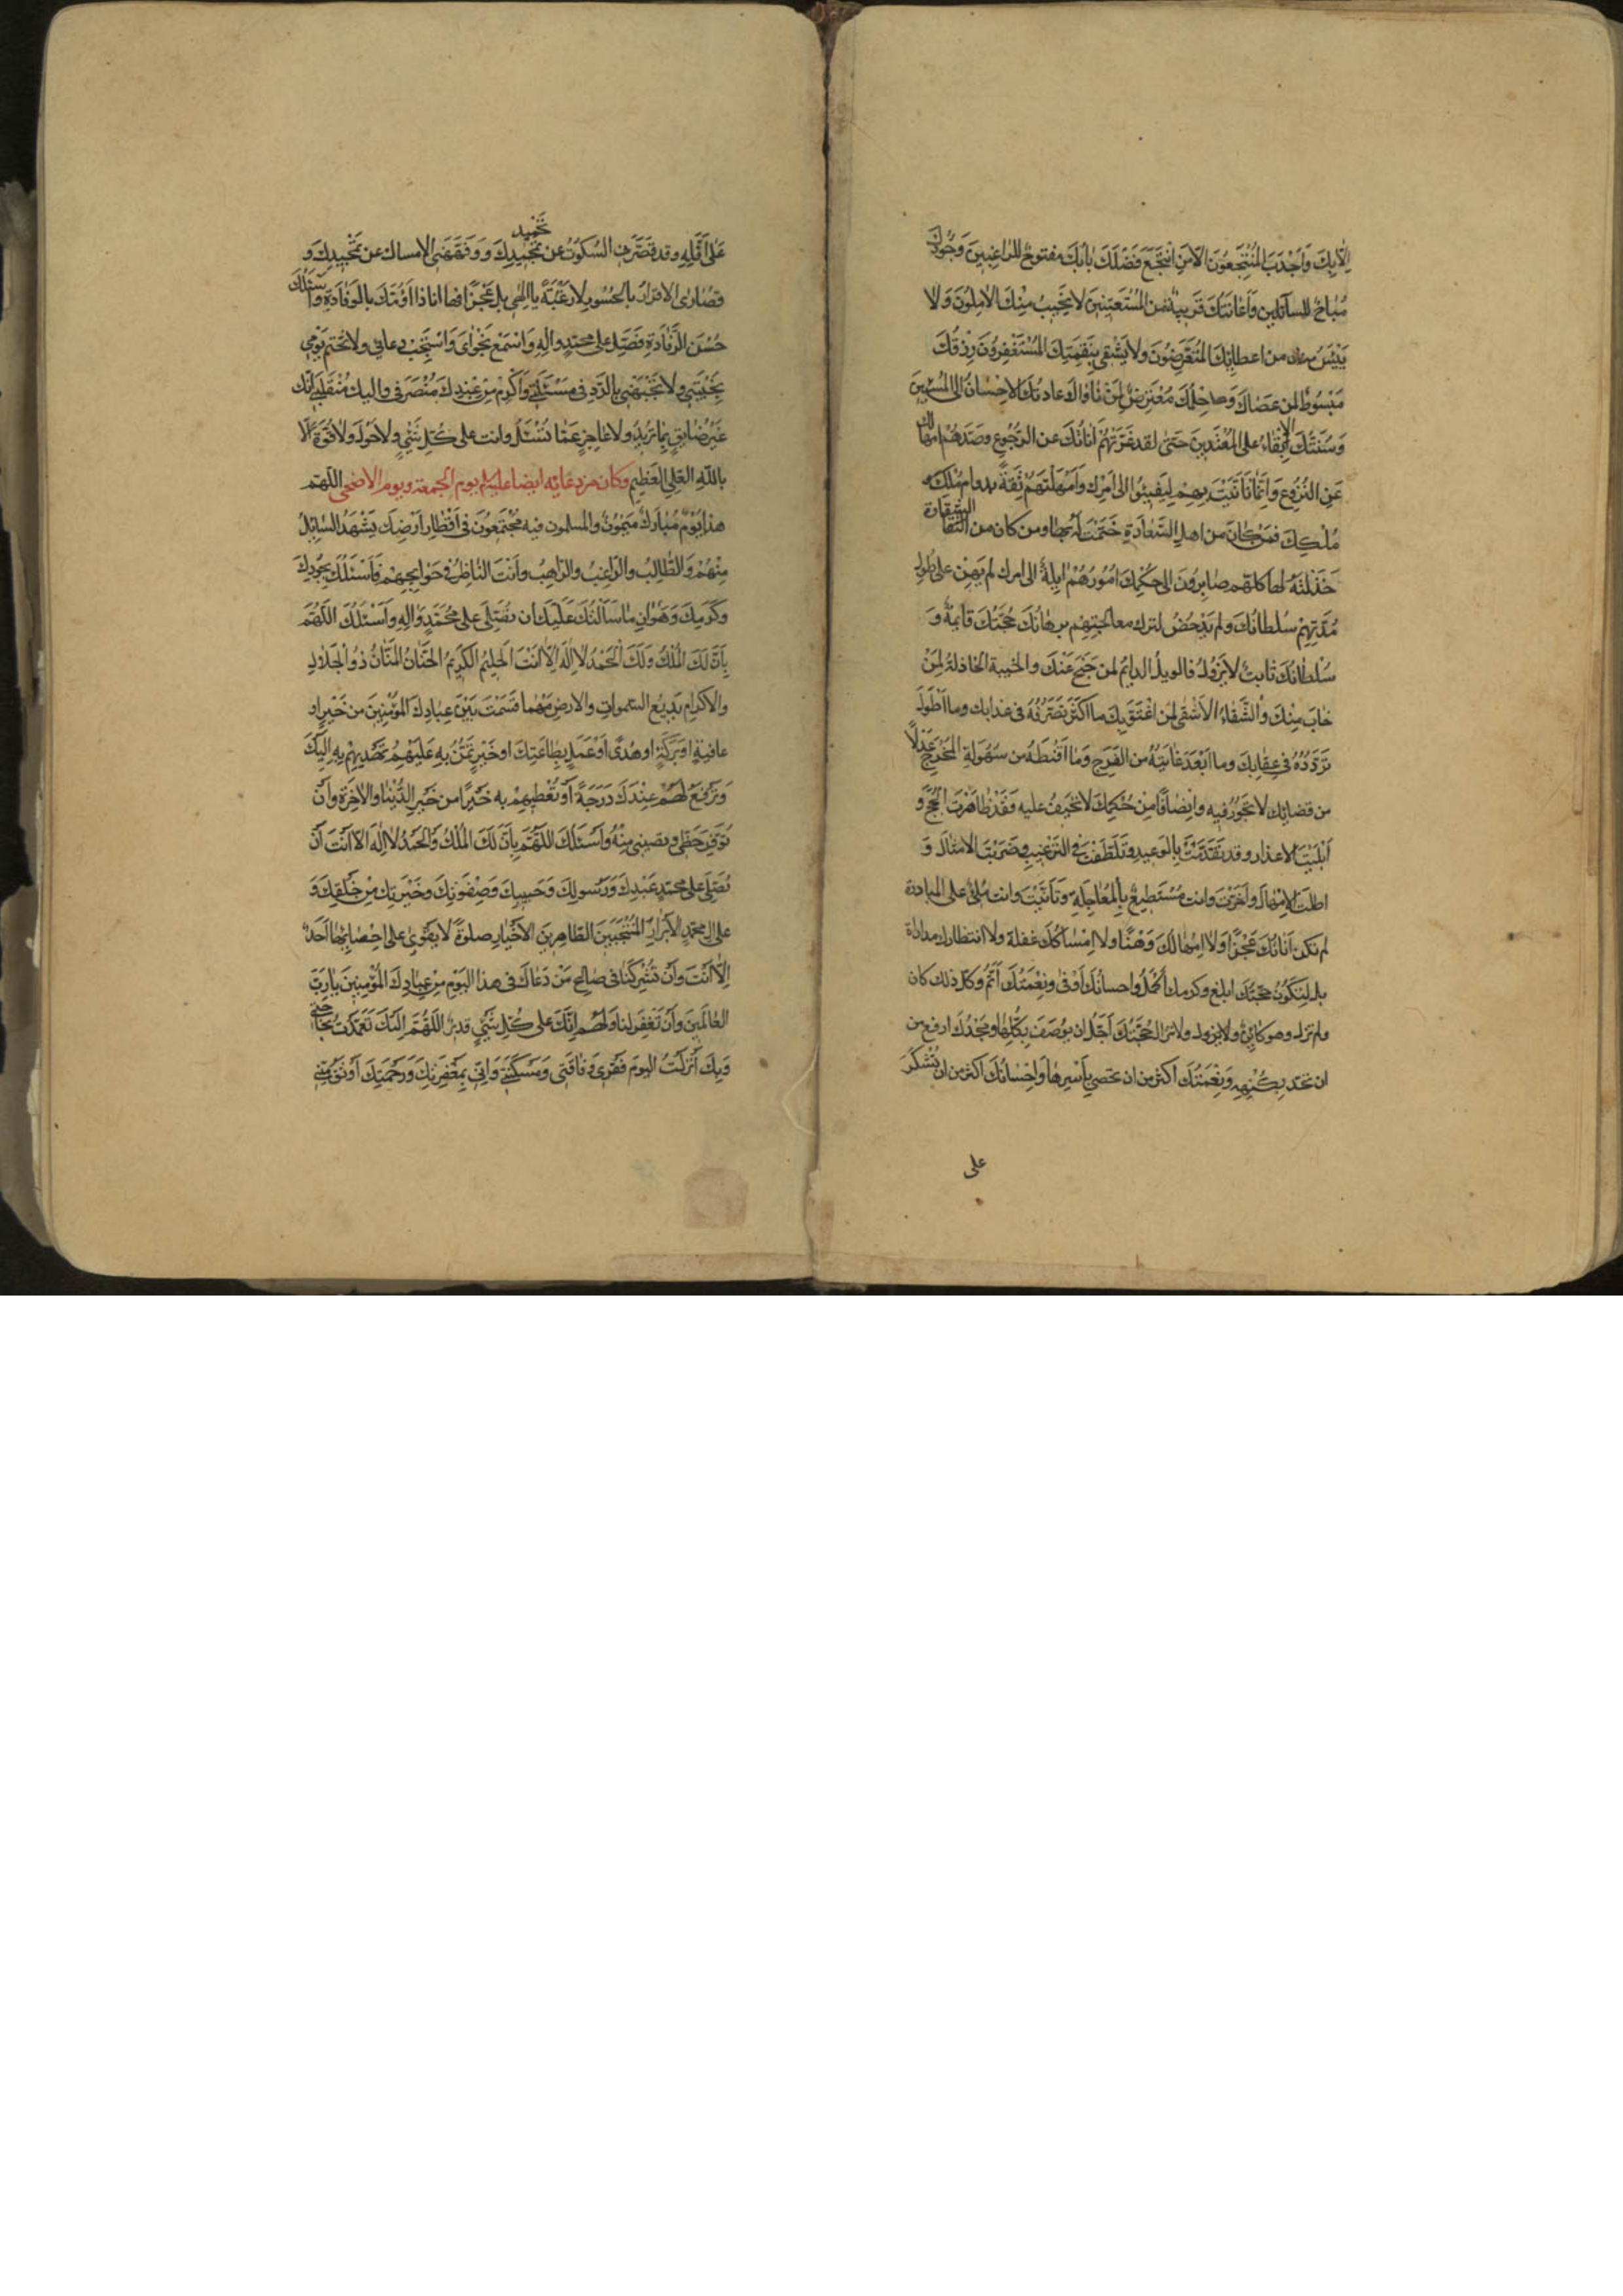 الا بك وَاَجْدَبَ المُنْتَجِعُونَ الّا مَنِ انْتَجَعَ فَضْلَكَ بابُكَ مفتوحٌ للراغبينَ وَجُودُكَ
مُباحٌ للسآئلين وَاِغاثَتُكَ قَريبةٌ من المُسْتَغيثينَ لا يَخيبُ مِنْكَ الآمِلُونَ وَلا
يَيْئَسُ من اعطائِكَ المُتَعَرِّضُونَ ولا يَشْقى بِنَقِمَتِكَ المُسْتَغْفِرُونَ رِزْقُكَ
مَبْسُوطٌ لمن عَصَاكَ وَحِلْمُكَ مُعْتَرِضٌ لِمَنْ ناواكَ عادتُكَ الاحْسانُ الى المُسيئينَ
وَسُنَّتُكَ الاِبْقاءُ على المُعْتَدينَ حَتّى لقد غَرَّتْهُمْ اَناتُكَ عن الرُّجُوعِ وصَدَّهُمْ امهالك
عَنِ النُّزُوعِ وَاِنَّما تَاَنَّيْتَ بِهِمْ لِيَفيئُوا الى اَمْرِك وَاَمْهَلْتَهُمْ ثِقَةً بدوام مُلْكِكَ
مُلْكِكَ فمَنْ كانَ من اهلِ السَّعادَةِ خَتَمْتَ لَهُ بها ومن كان من الشقاوة
خَذَلْتَهُ لها كلهم صايرُونَ الى حُكْمِكَ اُمُورُهُمْ ايِلةٌ الى امرك لم يَهِنْ على طُولِ
مُدَّتِهِمْ سُلطانُكَ ولم يَدْحَضْ لترك معاجلتِهِم برهانُكَ حُجَّتُكَ قايمةٌ وَ
سُلْطانُكَ ثابتٌ لا يَزُولُ فالويلُ الدايمُ لمن جَنَحَ عَنْكَ والخيبةُ الخاذلةُ لِمَنْ
خابَ مِنْكَ والشَّقاءُ الاَشْقى لمن اغْتَرَّ بِكَ ما اَكْثَرَ تَصَرُّفَهُ فى عذابك وما اَطْوَلَ
تَرَدُّدَهُ فى عِقابِكَ وما اَبْعَدَ غايَتَهُ من الفَرَجِ وَما اَقْنَطَهُ من سُهُولَةِ المَخْرَجِ عَدْلًا
من قضائِك لا تجورُ فيه واِنصافًا مِنْ حُكْمِكَ لا تحيفُ عليه فَقَدْ ظاهَرْتَ الحُجَجَ وَ
اَبْلَيْتَ الاعذار وقد تَقَدَّمْتَ بالوعيد وتَلَطَّفْتَ فى التَرْغيبِ وضَرَبْتَ الامثالَ وَ
اطلتَ الاِمْهالَ وَاَخَّرْتَ وانت مُسْتَطيعٌ بِالْمُعاجَلَةِ وَتَاَنَّيْتَ وانت مَلئٌ على المبادرة
لم تكن اَناتُكَ عَجْزًا وَلا اِمْهالُكَ وَهْنًا ولا اِمْساكُكَ غفلة ولا انتظارك مداراة
بل لِتَكُونَ حجّتُك ابلغ وكرمك اَكْمَلَ واحسانُكَ اَوْفى ونِعْمَتُكَ اَتَمَّ وكلّ ذلك كان
ولم تزل وهو كائِنٌ ولا يزول ولا تزال حُجَّتُكَ اَجَلُّ ان يُوصَفَ بِكُلِّها ومَجْدُكَ ارفع من
ان تحدّ بِكُنْهِهِ وَنِعْمَتُكَ اكثر من ان تحصى بِاَسْرِها وَاِحْسانُكَ اكثر من ان تُشْكَرَ
على
تَحْميد
عَلى اَقَلِّهِ وقد قَصَّرَ بى السُّكُوتُ عن تَمْجيدِكَ وَفَهَّهَنِى الامساك عن تَمْجيدِكَ وَ
قُصارى الاقرارُ بالحُسُورِ لا رَغْبَةً يا اِلهى بل عَجْزًا فها انا ذا اَؤُمُّكَ بالوِفادَةِ واَسْئَلُكَ
حُسْنَ الرِّفادَةِ فَصَلِّ على محمّدٍ والِهِ وَاسْمَعْ نَجْواىَ وَاسْتَجِبْ دعائى ولا تَخْتِم يَوْمى
بِخَيْبَتى ولا تَجْبَهْنى بالرَّدِ فى مَسْئَلَتى وَاَكْرِمْ مِنْ عِنْدِكَ مُنْصَرَفى واليك مُنْقَلَبى اِنّك
غَيْرُ ضايقٍ بِما تُريدُ ولا عاجِزٍ عَمّا تُسْئَلُ وانت على كُلِّ شَئٍ ولا حَوْلَ ولا قُوَّةَ اِلّا
بالله العَلِى العَظيمِ وكان من دعائِه ايضا عليه السلم يوم الجمعة ويوم الاضحى اللّهم
هذا يَوْمٌ مُبارَكٌ مَيْمُونٌ والمسلمون فيه مُجْتَمِعُونَ فى اَقْطارِ اَرْضِكَ يَشْهَدُ السّائِلُ
مِنْهُمْ وَالطّالِبُ والرّاغِبُ والرّاهِبُ وَاَنْتَ النّاظِرُ فى حَوائِجِهِمْ فَاَسْئَلُكَ بِجُودِكَ
وَكَرَمِكَ وَهَوانِ ما سَاَلْتُكَ عَلَيْكَ ان تُصَلِّىَ على مُحَمَّدٍ وَالِهِ وَاَسْئَلُكَ اللّهُمَّ
بِاَنَّ لَكَ المُلْكَ وَلَكَ الْحَمْدُ لا اِلهَ اِلّا اَنْتَ الحَليمُ الكَريمُ الحَنّانُ المَنّانُ ذُو الْجَلالِ
والاكرام بَديعُ السَّمواتِ والارضِ مَهْما قَسَمْتَ بَيْنَ عِبادِكَ المؤمِنينَ من خَيْرٍ او
عافيةٍ او بَرَكَةٍ او هُدًى اَوْ عَمَلٍ بِطاعَتِكَ او خَيْرٍ تَمُنُّ بِهِ عَلَيْهِمْ تَهْديهِمْ بِهِ اِلَيْكَ
وَتَرْفَعُ لَهُمْ عِنْدَكَ دَرَجَةً اَوْ تُعْطيهِمْ به خَيْرًا من خَيْرِ الدُّنْيا والاخِرَةِ وَاَنْ
تُوَفِّرَ حَظّى ونصيبى مِنْهُ وَاَسْئَلُكَ اللّهُمَّ بِاَنَّ لَكَ المُلْكَ وَالْحَمْدُ لا اِلهَ الّا اَنْتَ اَنْ
تُصَلِّىَ على محمّدٍ عَبْدِكَ وَرَسُولِكَ وَحَبيبِكَ وَصِفْوَتِكَ وخَيْرِتِكَ مِنْ خَلْقِكَ وَ
على ال محمّدٍ الأَبْرارِ المُنْتَجَبينَ الطّاهِرينَ الاَخْيارِ صلوةً لا يَقْوى على اِحْصائِها اَحَدٌ
اِلّا اَنْتَ وَاَنْ تُشْرِكَنا فى صالحِ مَنْ دَعاكَ فى هذا اليَوْمِ مِنْ عِبادِكَ المُؤْمِنينَ يا رَبَّ
العالَمينَ وَاَنْ تَغْفِرَ لنا وَلَهُمْ اِنَّكَ على كُلِّ شَئٍ قديرٌ اللّهُمَّ اِلَيْكَ تَعَمَّدْتُ بِحاجَتى
وَبِكَ اَنْزَلْتُ اليومَ فَقْرى وَفاقَتى وَمَسْكَنَتى وَاِنّى بِمَغْفِرَتِكَ وَرَحْمَتِكَ اَوْثَقُ مِنّى